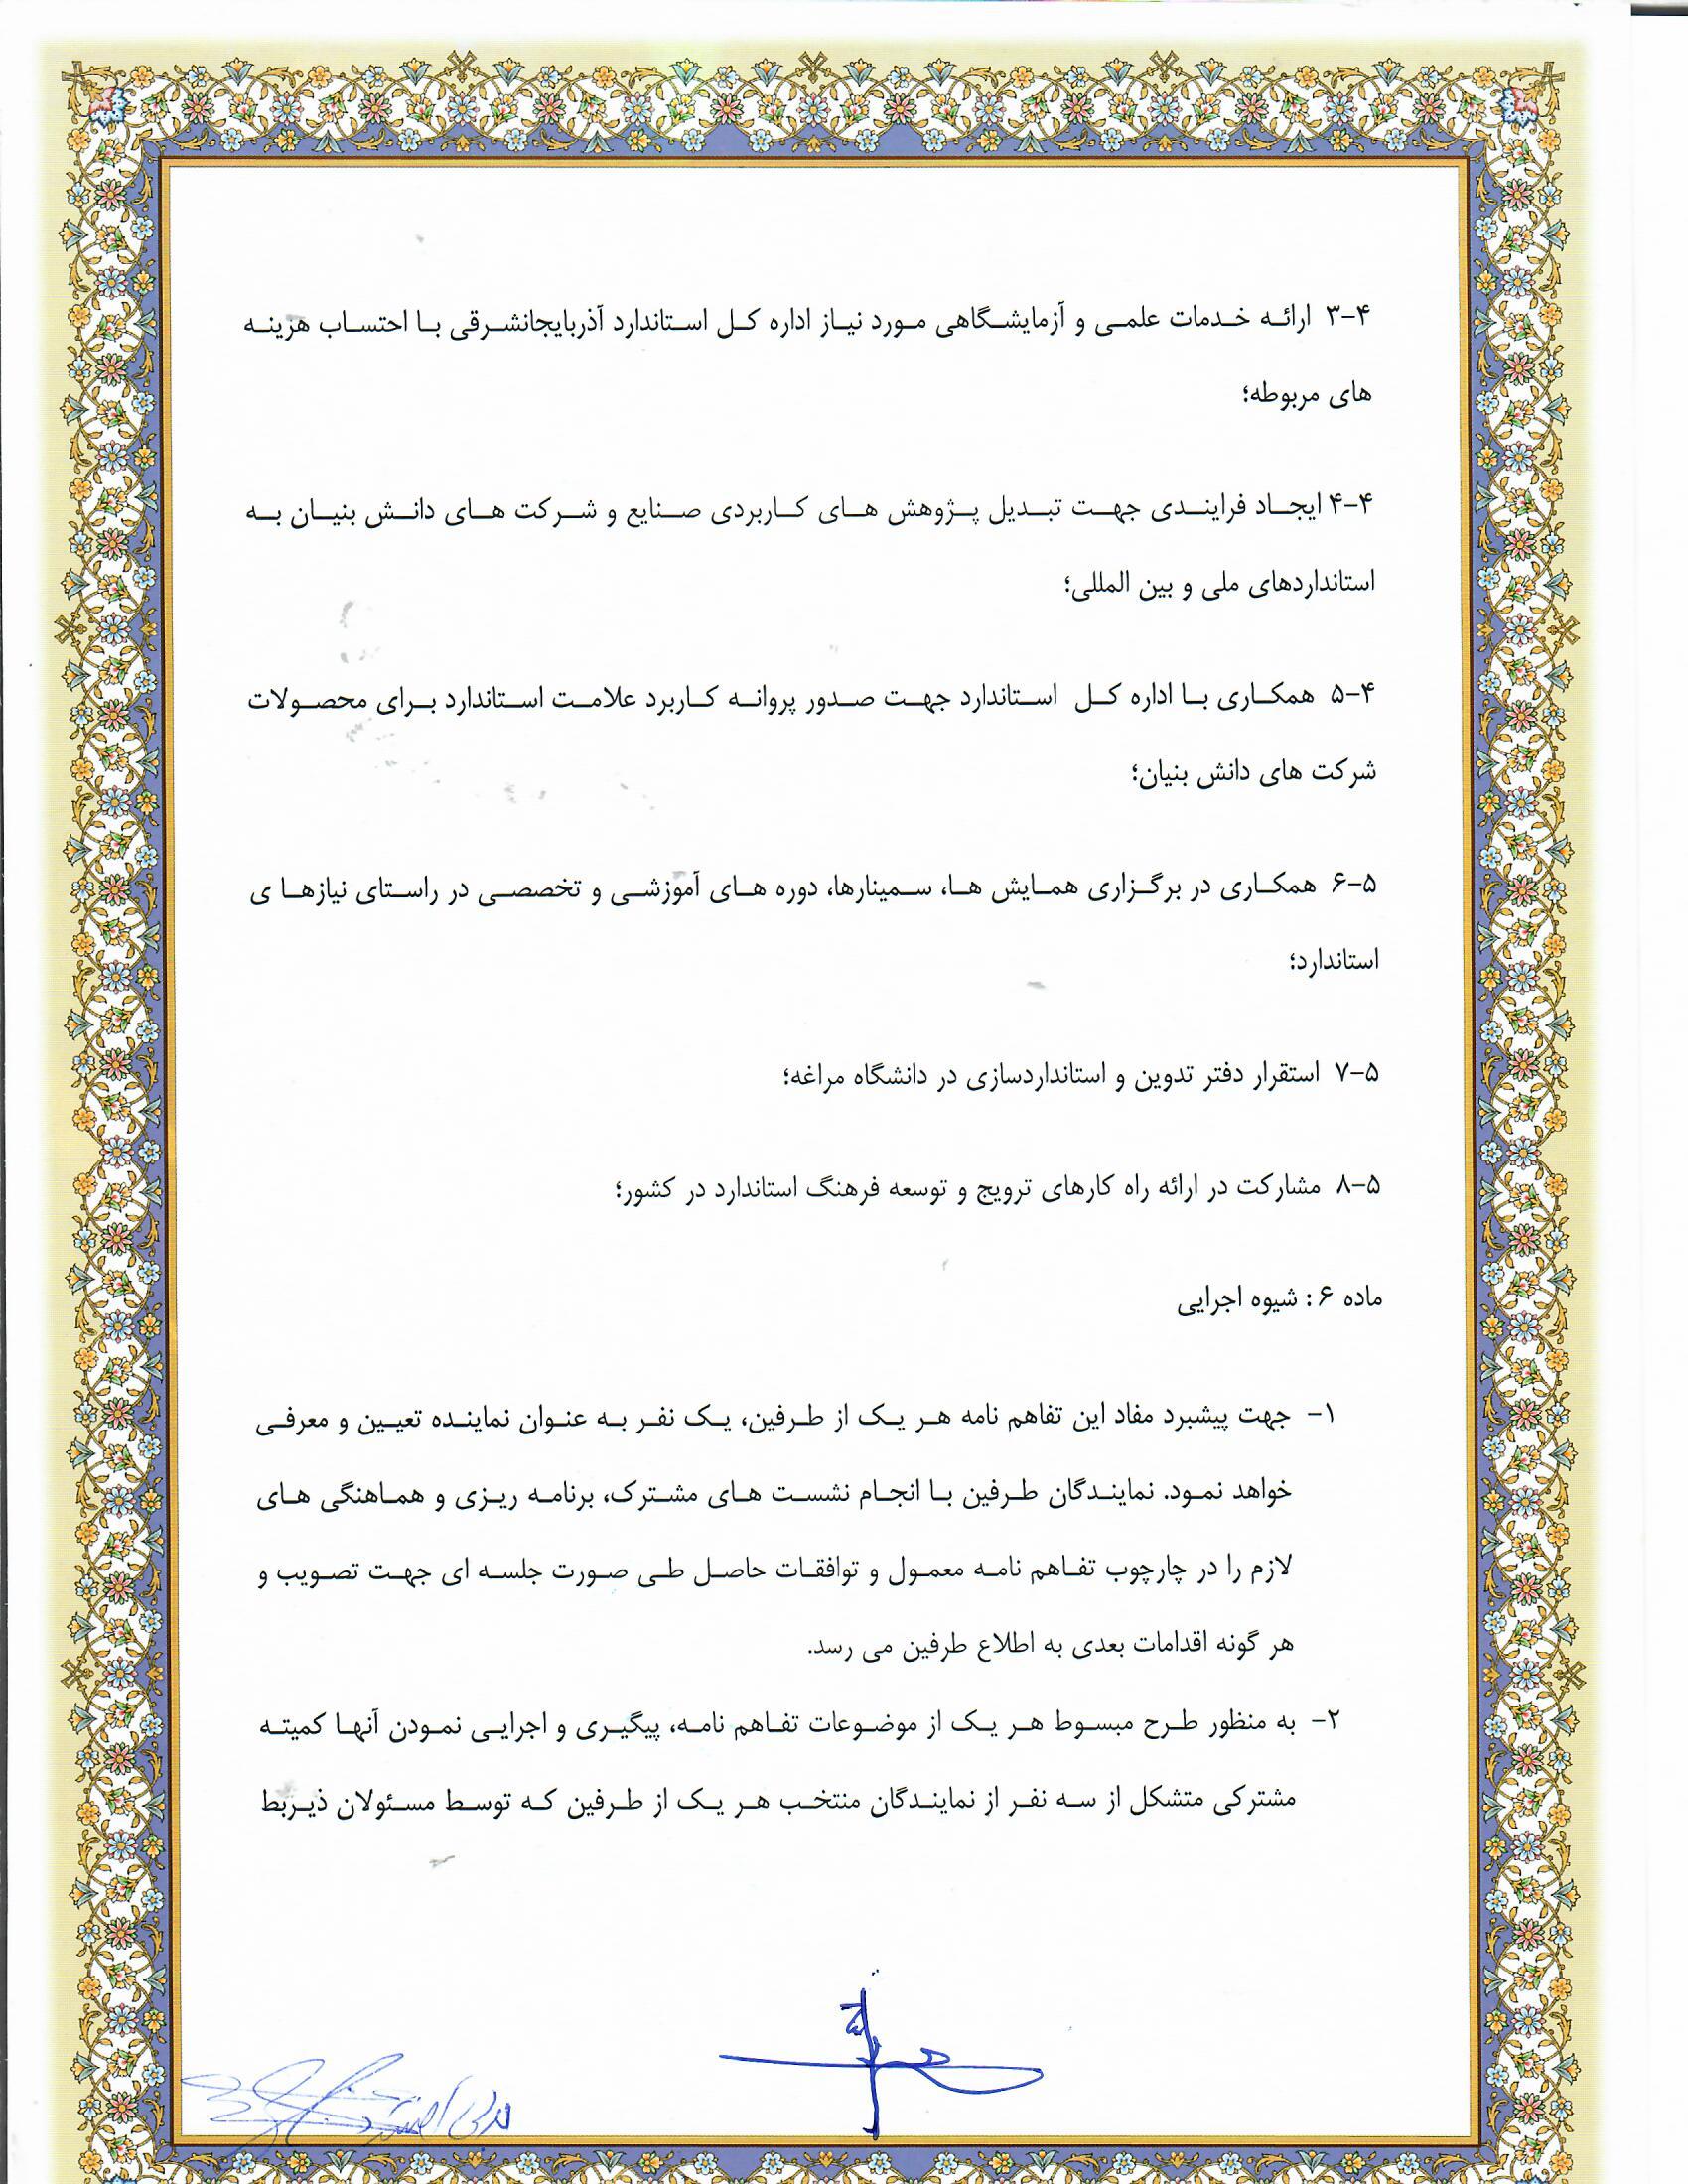 ۳-۴ ارائه خدمات علمی و آزمایشگاهی مورد نیاز اداره کل استاندارد آذربایجانشرقی با احتساب هزینه
های مربوطه؛
۴-۴ ایجاد فرایندی جهت تبدیل پژوهش های کاربردی صنایع و شرکت های دانش بنیان به
استانداردهای ملی و بین المللی؛
۵-۴ همکاری با اداره کل استاندارد جهت صدور پروانه کاربرد علامت استاندارد برای محصولات
شرکت های دانش بنیان؛
۶-۵ همکاری در برگزاری همایش ها، سمینارها، دوره های آموزشی و تخصصی در راستای نیازها ی
استاندارد؛
۷-۵ استقرار دفتر تدوین و استانداردسازی در دانشگاه مراغه؛
۸-۵ مشارکت در ارائه راه کارهای ترویج و توسعه فرهنگ استاندارد در کشور؛
ماده ۶ : شیوه اجرایی
۱- جهت پیشبرد مفاد این تفاهم نامه هر یک از طرفین، یک نفر به عنوان نماینده تعیین و معرفی
خواهد نمود. نمایندگان طرفین با انجام نشست های مشترک، برنامه ریزی و هماهنگی های
لازم را در چارچوب تفاهم نامه معمول و توافقات حاصل طی صورت جلسه ای جهت تصویب و
هر گونه اقدامات بعدی به اطلاع طرفین می رسد.
۲- به منظور طرح مبسوط هر یک از موضوعات تفاهم نامه، پیگیری و اجرایی نمودن آنها کمیته
مشترکی متشکل از سه نفر از نمایندگان منتخب هر یک از طرفین که توسط مسئولان ذیربط